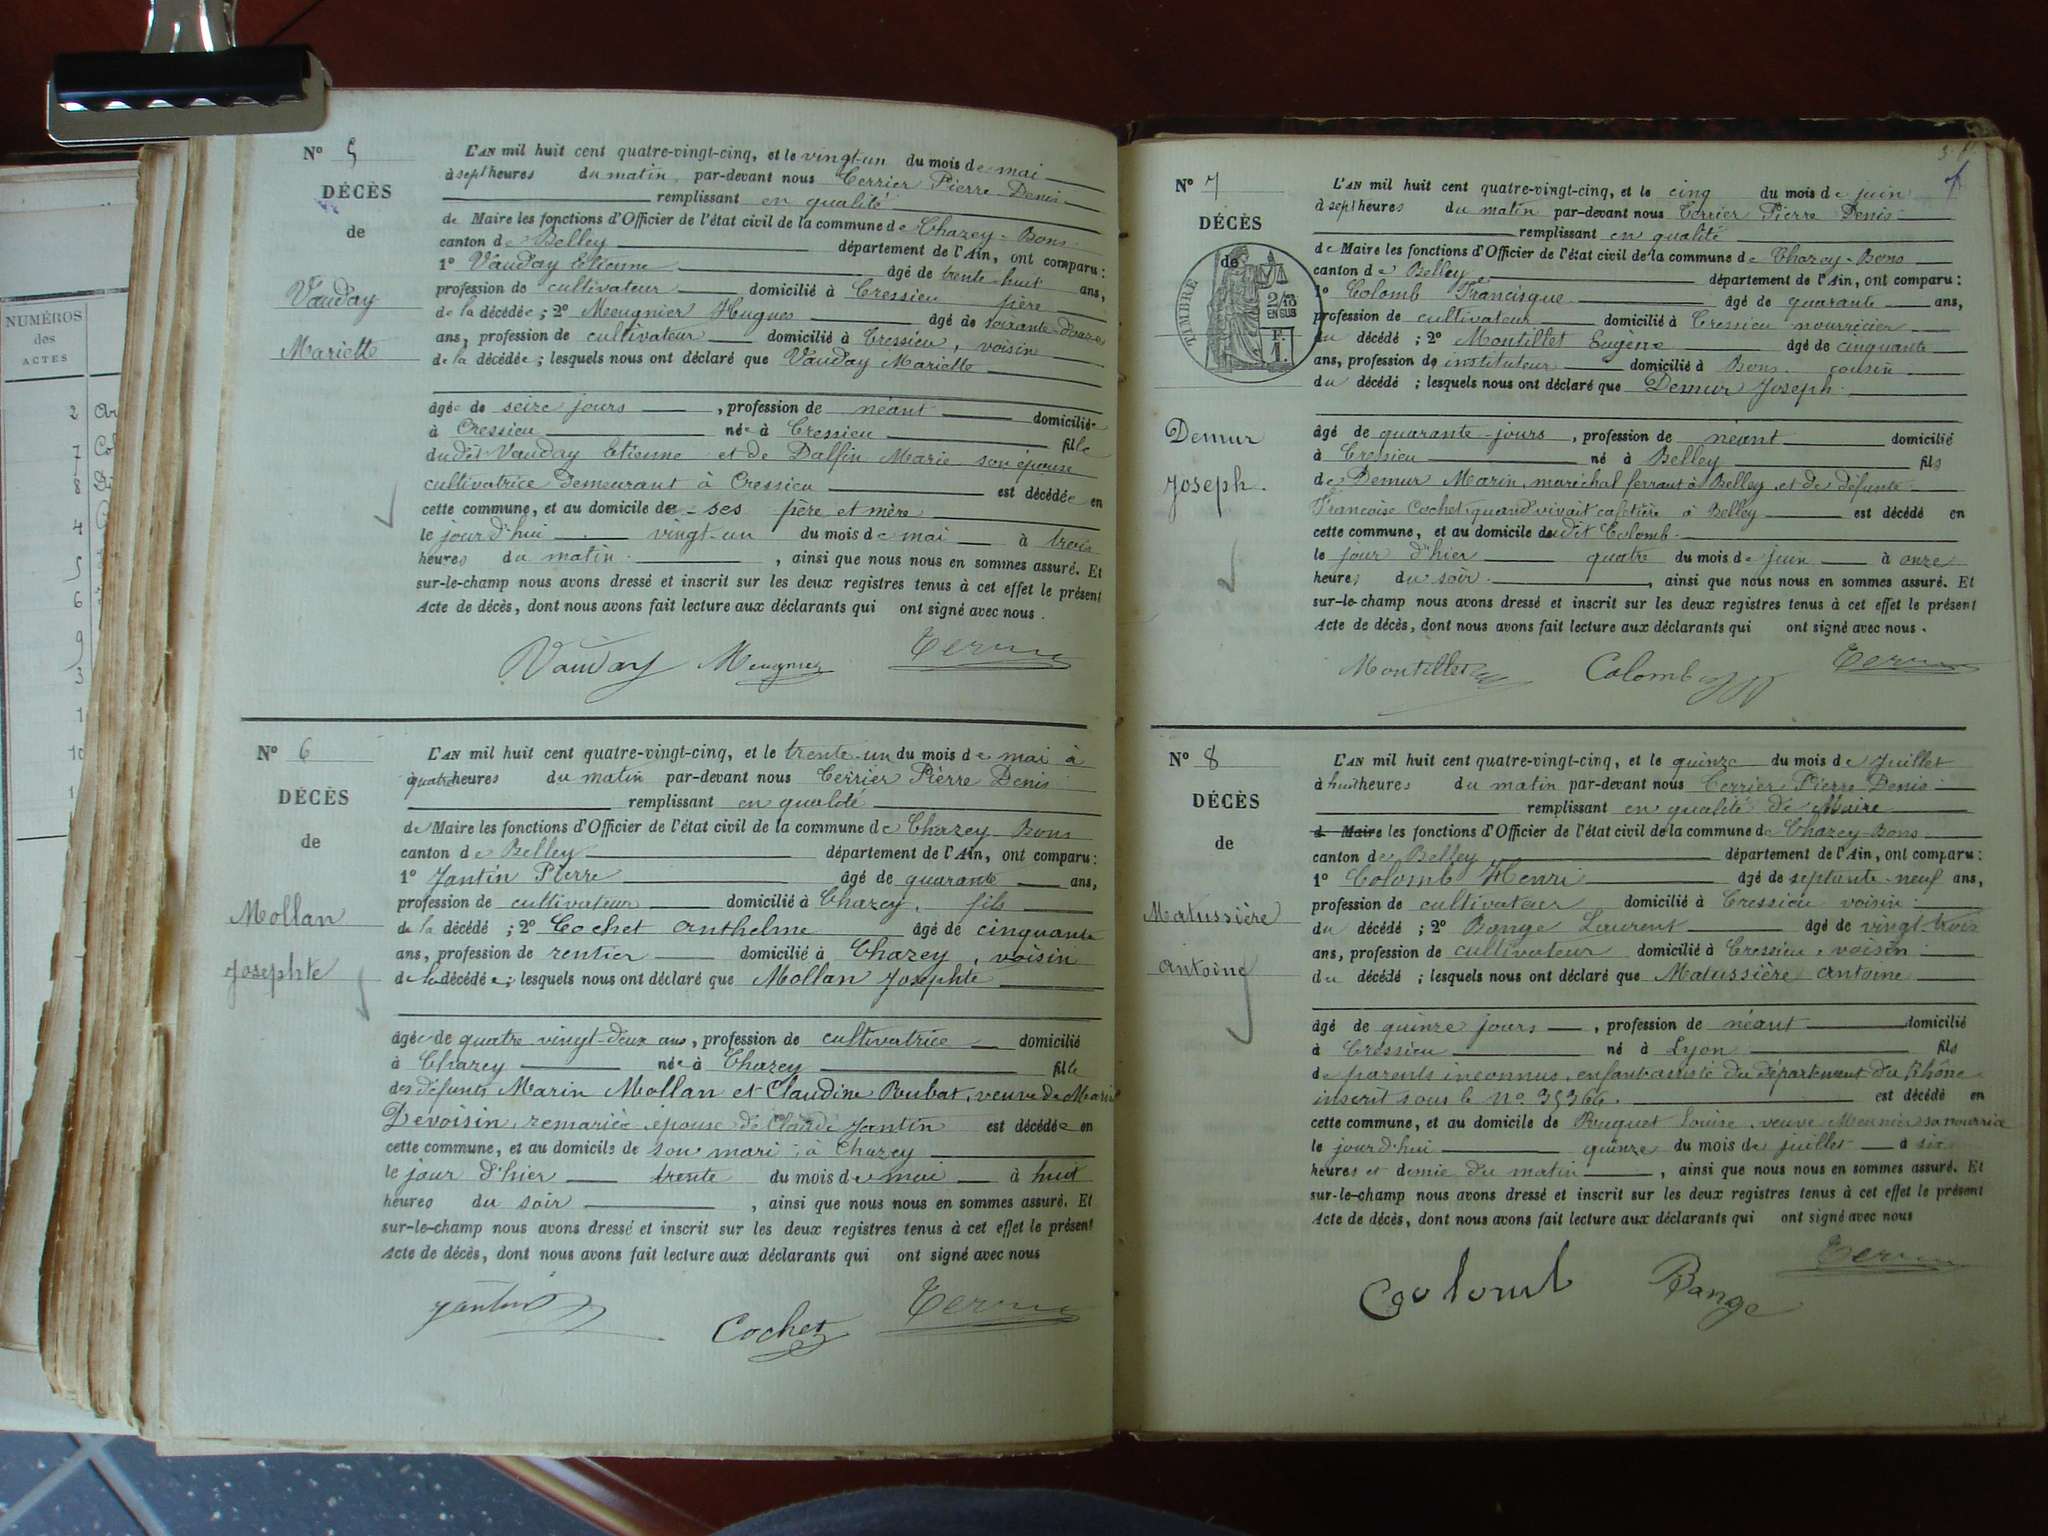 NUMÉROS
des
ACTES
2
7
8
4
5
6
9
3
1
10
N° 5
DÉCÈS
de
Vauday
Mariette
L'AN mil huit cent quatre-vingt-cinq, et le vingt-un du mois de mai
à sept heures du matin, par-devant nous Terrier Pierre Denis
remplissant en qualité
de Maire les fonctions d'Officier de l'état civil de la commune de Chazey-Bons
canton de Belley département de l'Ain, ont comparu :
1° Vauday Etienne âgé de trente-huit ans,
profession de cultivateur domicilié à Cressieu père
de la décédée ; 2° Meugnier Hugues âgé de soixante-douze
ans, profession de cultivateur domicilié à Cressieu, voisin
de la décédée ; lesquels nous ont déclaré que Vauday Mariette
âgée de seize jours , profession de néant domiciliée
à Cressieu née à Cressieu fille
du dit Vauday Etienne et de Dalfin Marie son épouse
cultivatrice demeurant à Cressieu est décédée en
cette commune, et au domicile de ses père et mère
le jour d'hui vingt-un du mois de mai à trois
heures du matin , ainsi que nous nous en sommes assuré. Et
sur-le-champ nous avons dressé et inscrit sur les deux registres tenus à cet effet le présent
Acte de décès, dont nous avons fait lecture aux déclarants qui ont signé avec nous.
Vauday Meugnier Terrier
N° 6
DÉCÈS
de
Mollan
Josephte
L'AN mil huit cent quatre-vingt-cinq, et le trente-un du mois de mai à
quatre heures du matin par-devant nous Terrier Pierre Denis
remplissant en qualité
de Maire les fonctions d'Officier de l'état civil de la commune de Chazey-Bons
canton de Belley département de l'Ain, ont comparu :
1° Jantin Pierre âgé de quarante ans,
profession de cultivateur domicilié à Chazey, fils
de la décédé ; 2° Cochet Anthelme âgé de cinquante
ans, profession de rentier domicilié à Chazey, voisin
de la décédée ; lesquels nous ont déclaré que Mollan Josephte
âgée de quatre vingt-deux ans, profession de cultivatrice domicilié
à Chazey née à Chazey fille
des défunts Marin Mollan et Claudine Roubat, veuve de Marin
Devoisin, remariée épouse de Claude Jantin est décédée en
cette commune, et au domicile de son mari à Chazey
le jour d'hier trente du mois de mai à huit
heures du soir , ainsi que nous nous en sommes assuré. Et
sur-le-champ nous avons dressé et inscrit sur les deux registres tenus à cet effet le présent
Acte de décès, dont nous avons fait lecture aux déclarants qui ont signé avec nous
Jantin Cochet Terrier
N° 7
DÉCÈS
de
TIMBRE
2/10 EN SUS
F. 1.
Demur
Joseph.
L'AN mil huit cent quatre-vingt-cinq, et le cinq du mois de juin
à sept heures du matin par-devant nous Terrier Pierre Denis
remplissant en qualité
de Maire les fonctions d'Officier de l'état civil de la commune de Chazey-Bons
canton de Belley département de l'Ain, ont comparu :
1° Colomb Francisque âgé de quarante ans,
profession de cultivateur domicilié à Cressieu nourricier
du décédé ; 2° Montillet Eugène âgé de cinquante
ans, profession de instituteur domicilié à Bons cousin
du décédé ; lesquels nous ont déclaré que Demur Joseph
âgé de quarante-jours , profession de néant domicilié
à Cressieu né à Belley fils
de Demur Marin, maréchal ferrant à Belley et de défunte
Françoise Cochet, quand vivait cafetière à Belley est décédé en
cette commune, et au domicile du dit Colomb
le jour d'hier quatre du mois de juin à onze
heures du soir , ainsi que nous nous en sommes assuré. Et
sur-le-champ nous avons dressé et inscrit sur les deux registres tenus à cet effet le présent
Acte de décès, dont nous avons fait lecture aux déclarants qui ont signé avec nous.
Montillet Colomb Terrier
N° 8
DÉCÈS
de
Matussière
Antoine
L'AN mil huit cent quatre-vingt-cinq, et le quinze du mois de Juillet
à huit heures du matin par-devant nous Terrier Pierre Denis
remplissant en qualité de Maire
de Maire les fonctions d'Officier de l'état civil de la commune de Chazey-Bons
canton de Belley département de l'Ain, ont comparu :
1° Colomb Henri âgé de septante-neuf ans,
profession de cultivateur domicilié à Cressieu voisin
du décédé ; 2° Bange Laurent âgé de vingt-trois
ans, profession de cultivateur domicilié à Cressieu, voisin
du décédé ; lesquels nous ont déclaré que Matussière Antoine
âgé de quinze jours , profession de néant domicilié
à Cressieu né à Lyon fils
de parents inconnus, enfant assisté du département du Rhône
inscrit sous le N° 35366. est décédé en
cette commune, et au domicile de Buguet Louise, veuve Meunier sa nourrice
le jour d'hui quinze du mois de juillet à six
heures et demie du matin , ainsi que nous nous en sommes assuré. Et
sur-le-champ nous avons dressé et inscrit sur les deux registres tenus à cet effet le présent
Acte de décès, dont nous avons fait lecture aux déclarants qui ont signé avec nous
Colomb Bange Terrier